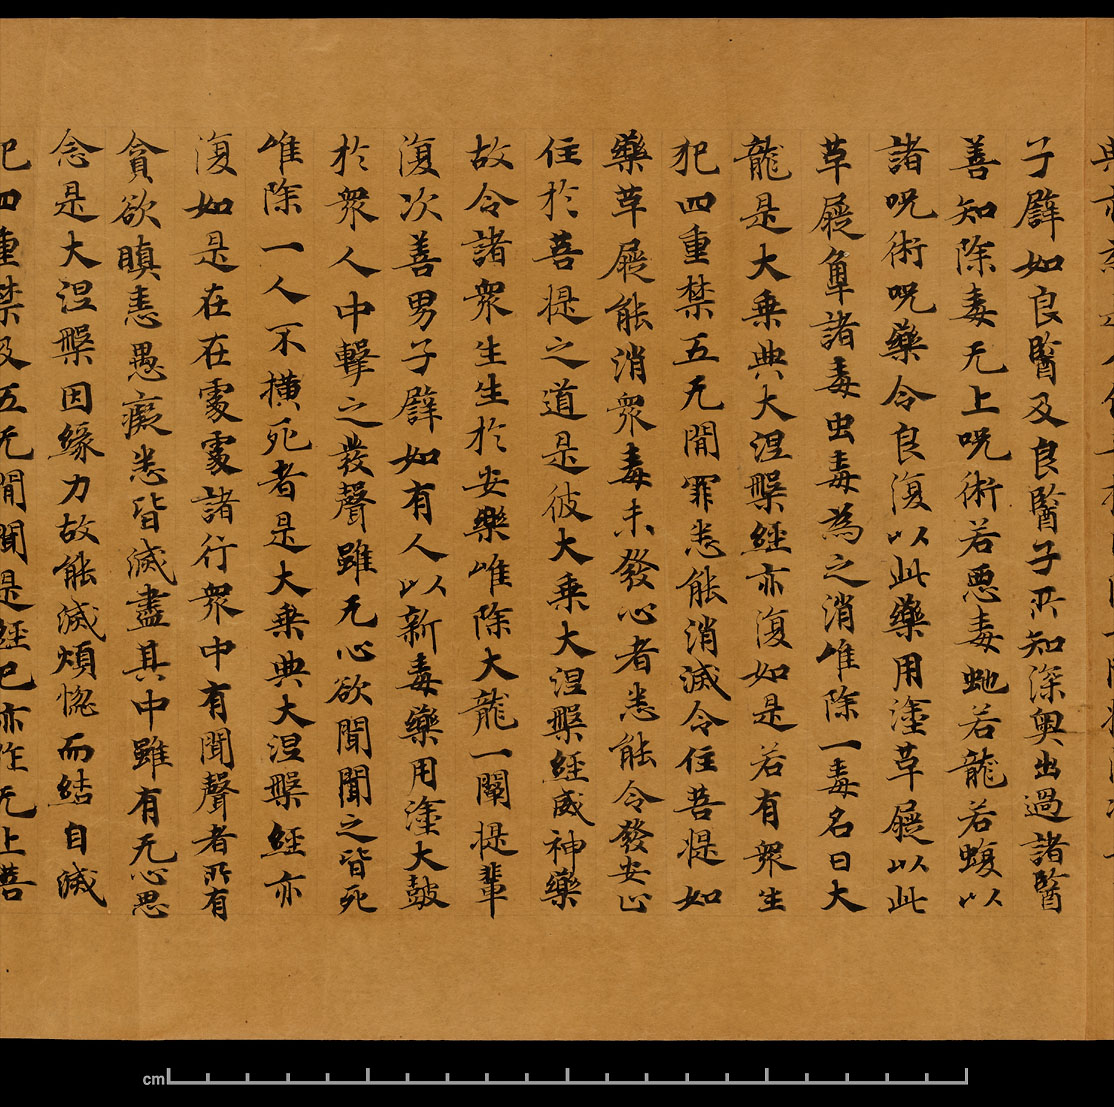 子譬如良醫及良醫子所知深奧出過諸醫
善知除毒无上呪術若惡毒虵若龍若蝮以
諸呪術呪藥令良復以此藥用塗草屣以此
草屣觸諸毒虫毒為之消唯除一毒名曰大
龍是大乘典大涅槃經亦復如是若有眾生
犯四重禁五无間罪悉能消滅令住菩提如
藥草屣能消眾毒未發心者悉能令發安止
住於菩提之道是彼大乘大涅槃經威神藥
故令諸眾生生於安樂唯除大龍一闡提輩
復次善男子譬如有人以新毒藥用塗大鼓
於眾人中擊之發聲雖无心欲聞聞之皆死
唯除一人不橫死者是大乘典大涅槃經亦
復如是在在處處諸行眾中有聞聲者所有
貪欲瞋恚愚癡悉皆滅盡其中雖有无心思
念是大涅槃因緣力故能滅煩惱而結自滅
犯四重禁及五无間聞是經已亦作无上菩
cm